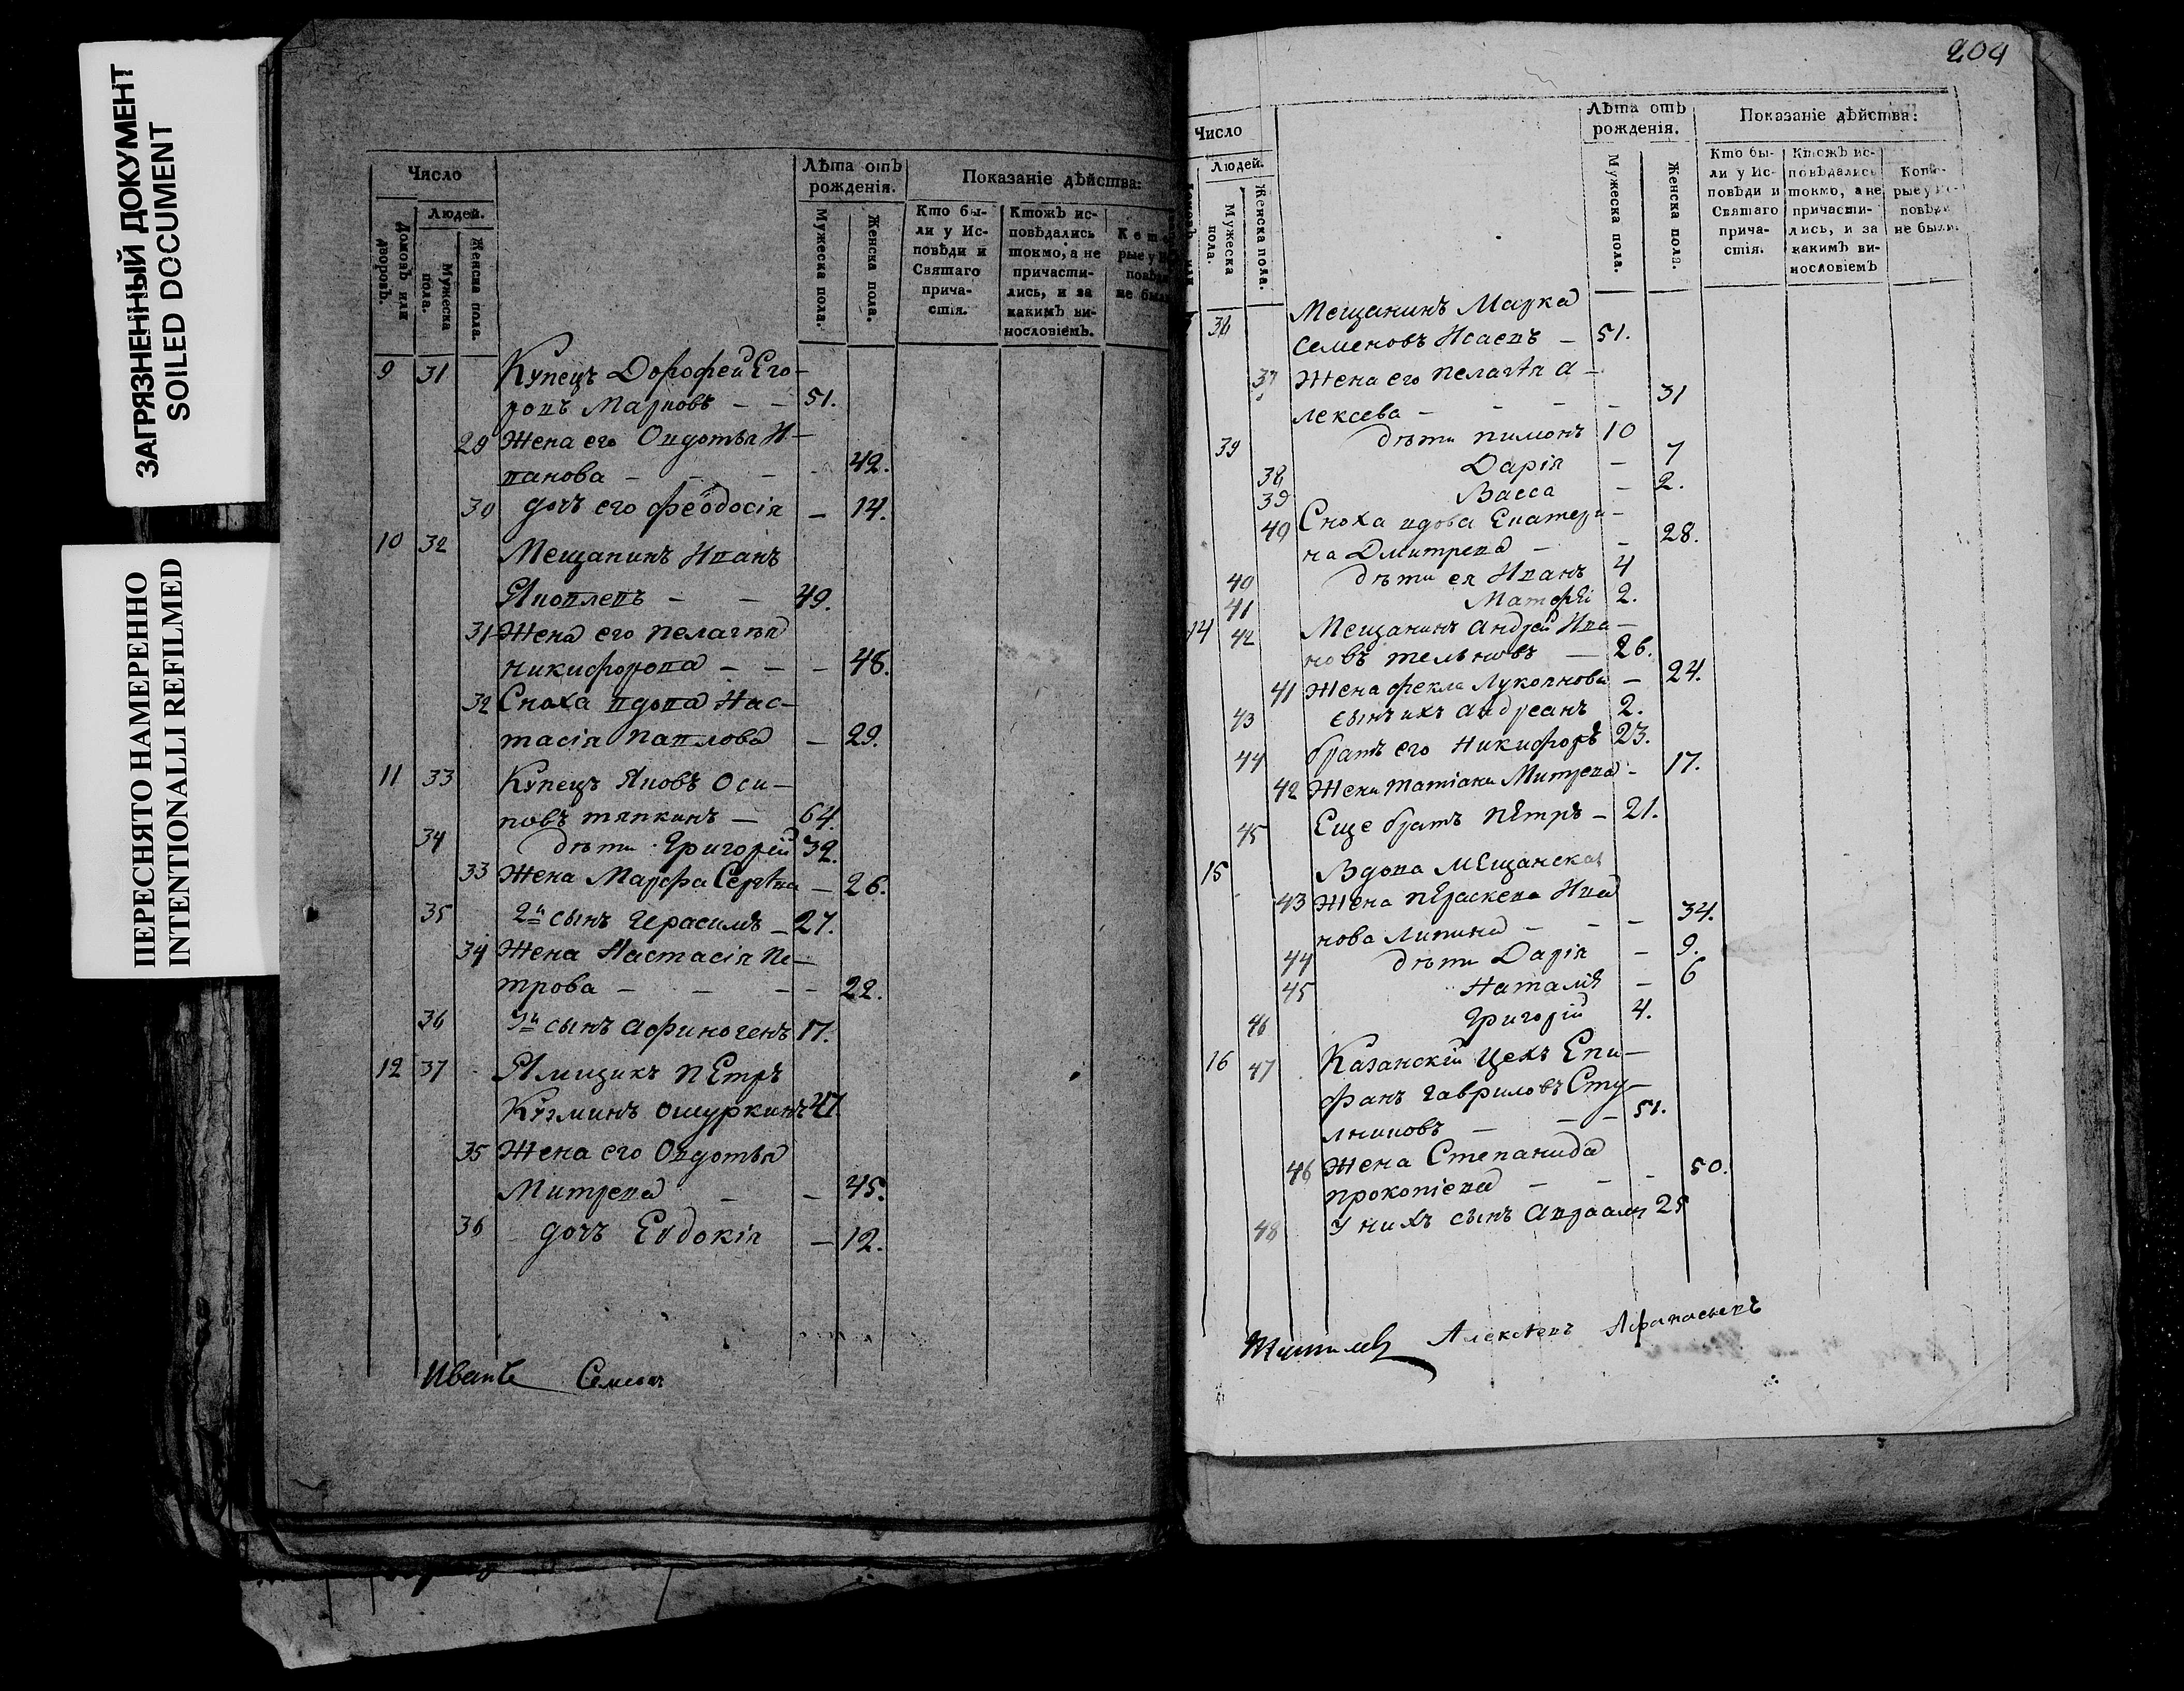 ЗАГРЯЗНЕННЫЙ ДОКУМЕНТ
SOILED DOCUMENT
ПЕРЕСНЯТО НАМЕРЕННО
INTENTIONALLI REFILMED
Число
Людей.
Домовъ или дворовъ.
Мужеска пола.
Женска пола.
Лѣта отъ рожденія.
Мужеска пола.
Женска пола.
Показаніе дѣйства:
Кто были у Исповѣди и Святаго причастія.
Ктожъ исповѣдались токмо, а не причастились, и за какимъ винословіемъ.
9 31 Купецъ Дорофей Его-
ровъ Марковъ — — 51.
29 Жена его Овдотья И-
ванова — — — 42.
30 дочь его Феодосія — 14.
10 32 Мещанинъ Иванъ
Яковлевъ — — 49.
31 Жена его Пелагѣя
Никифорова — — — 48.
32 Сноха вдова Нас-
тасія Павлова — 29.
11 33 Купецъ Яковъ Оси-
повъ Тяпкинъ — 64.
34 дѣти Григорей 32.
33 Жена Марфа Сергѣва — 26.
35 2й сынъ Герасимъ — 27.
34 Жена Настасія Пе-
трова — — — 22.
36 3й сынъ Афиногенъ 17.
12 37 Ямщикъ Петръ
Кузминъ Ошуркинъ 47.
35 Жена его Овдотья
Митрева — — 45.
36 дочь Евдокія — 12.
Иванъ Семенъ
204
Число
Людей.
Мужеска пола.
Женска пола.
Лѣта отъ рожденія.
Мужеска пола.
Женска пола.
Показаніе дѣйства:
Кто были у Исповѣди и Святаго причастія.
Ктожъ исповѣдались токмо, а не причастились, и за какимъ винословіемъ
Которые у Исповѣди не были.
38 Мещанинъ Марка
Семеновъ Исаевъ — 51.
37 Жена его Пелагѣя А-
лексева — — — — 31
39 дѣти Пимонъ 10
38 Дарія — 7
39 Васса — 2.
40 Сноха вдова Екатери-
на Дмитрева — — 28.
40 дѣти ея Иванъ 4
41 Матфѣй 2.
14 42 Мещанинъ Андрей Ива-
новъ Тельновъ — 26.
41 Жена Фекла Луконнова — 24.
43 сынъ ихъ Андреанъ 2.
44 братъ его Никифоръ 23.
42 Жена Татіана Митрева — 17.
45 Еще братъ Петръ — 21.
15 Вдова Мещанская
43 Жена Праскева Ива
нова Липина — — — 34.
44 дѣти Дарія — 9.
45 Наталія — 6
46 Григорій 4.
16 47 Казанскій Цехъ Епи-
фанъ Гавриловъ Сту-
лниковъ — — — 51.
46 Жена Степанида
Прокопіева — — — 50.
48 У нихъ сынъ Авраамъ 25
Алексѣевъ Афанасьевъ